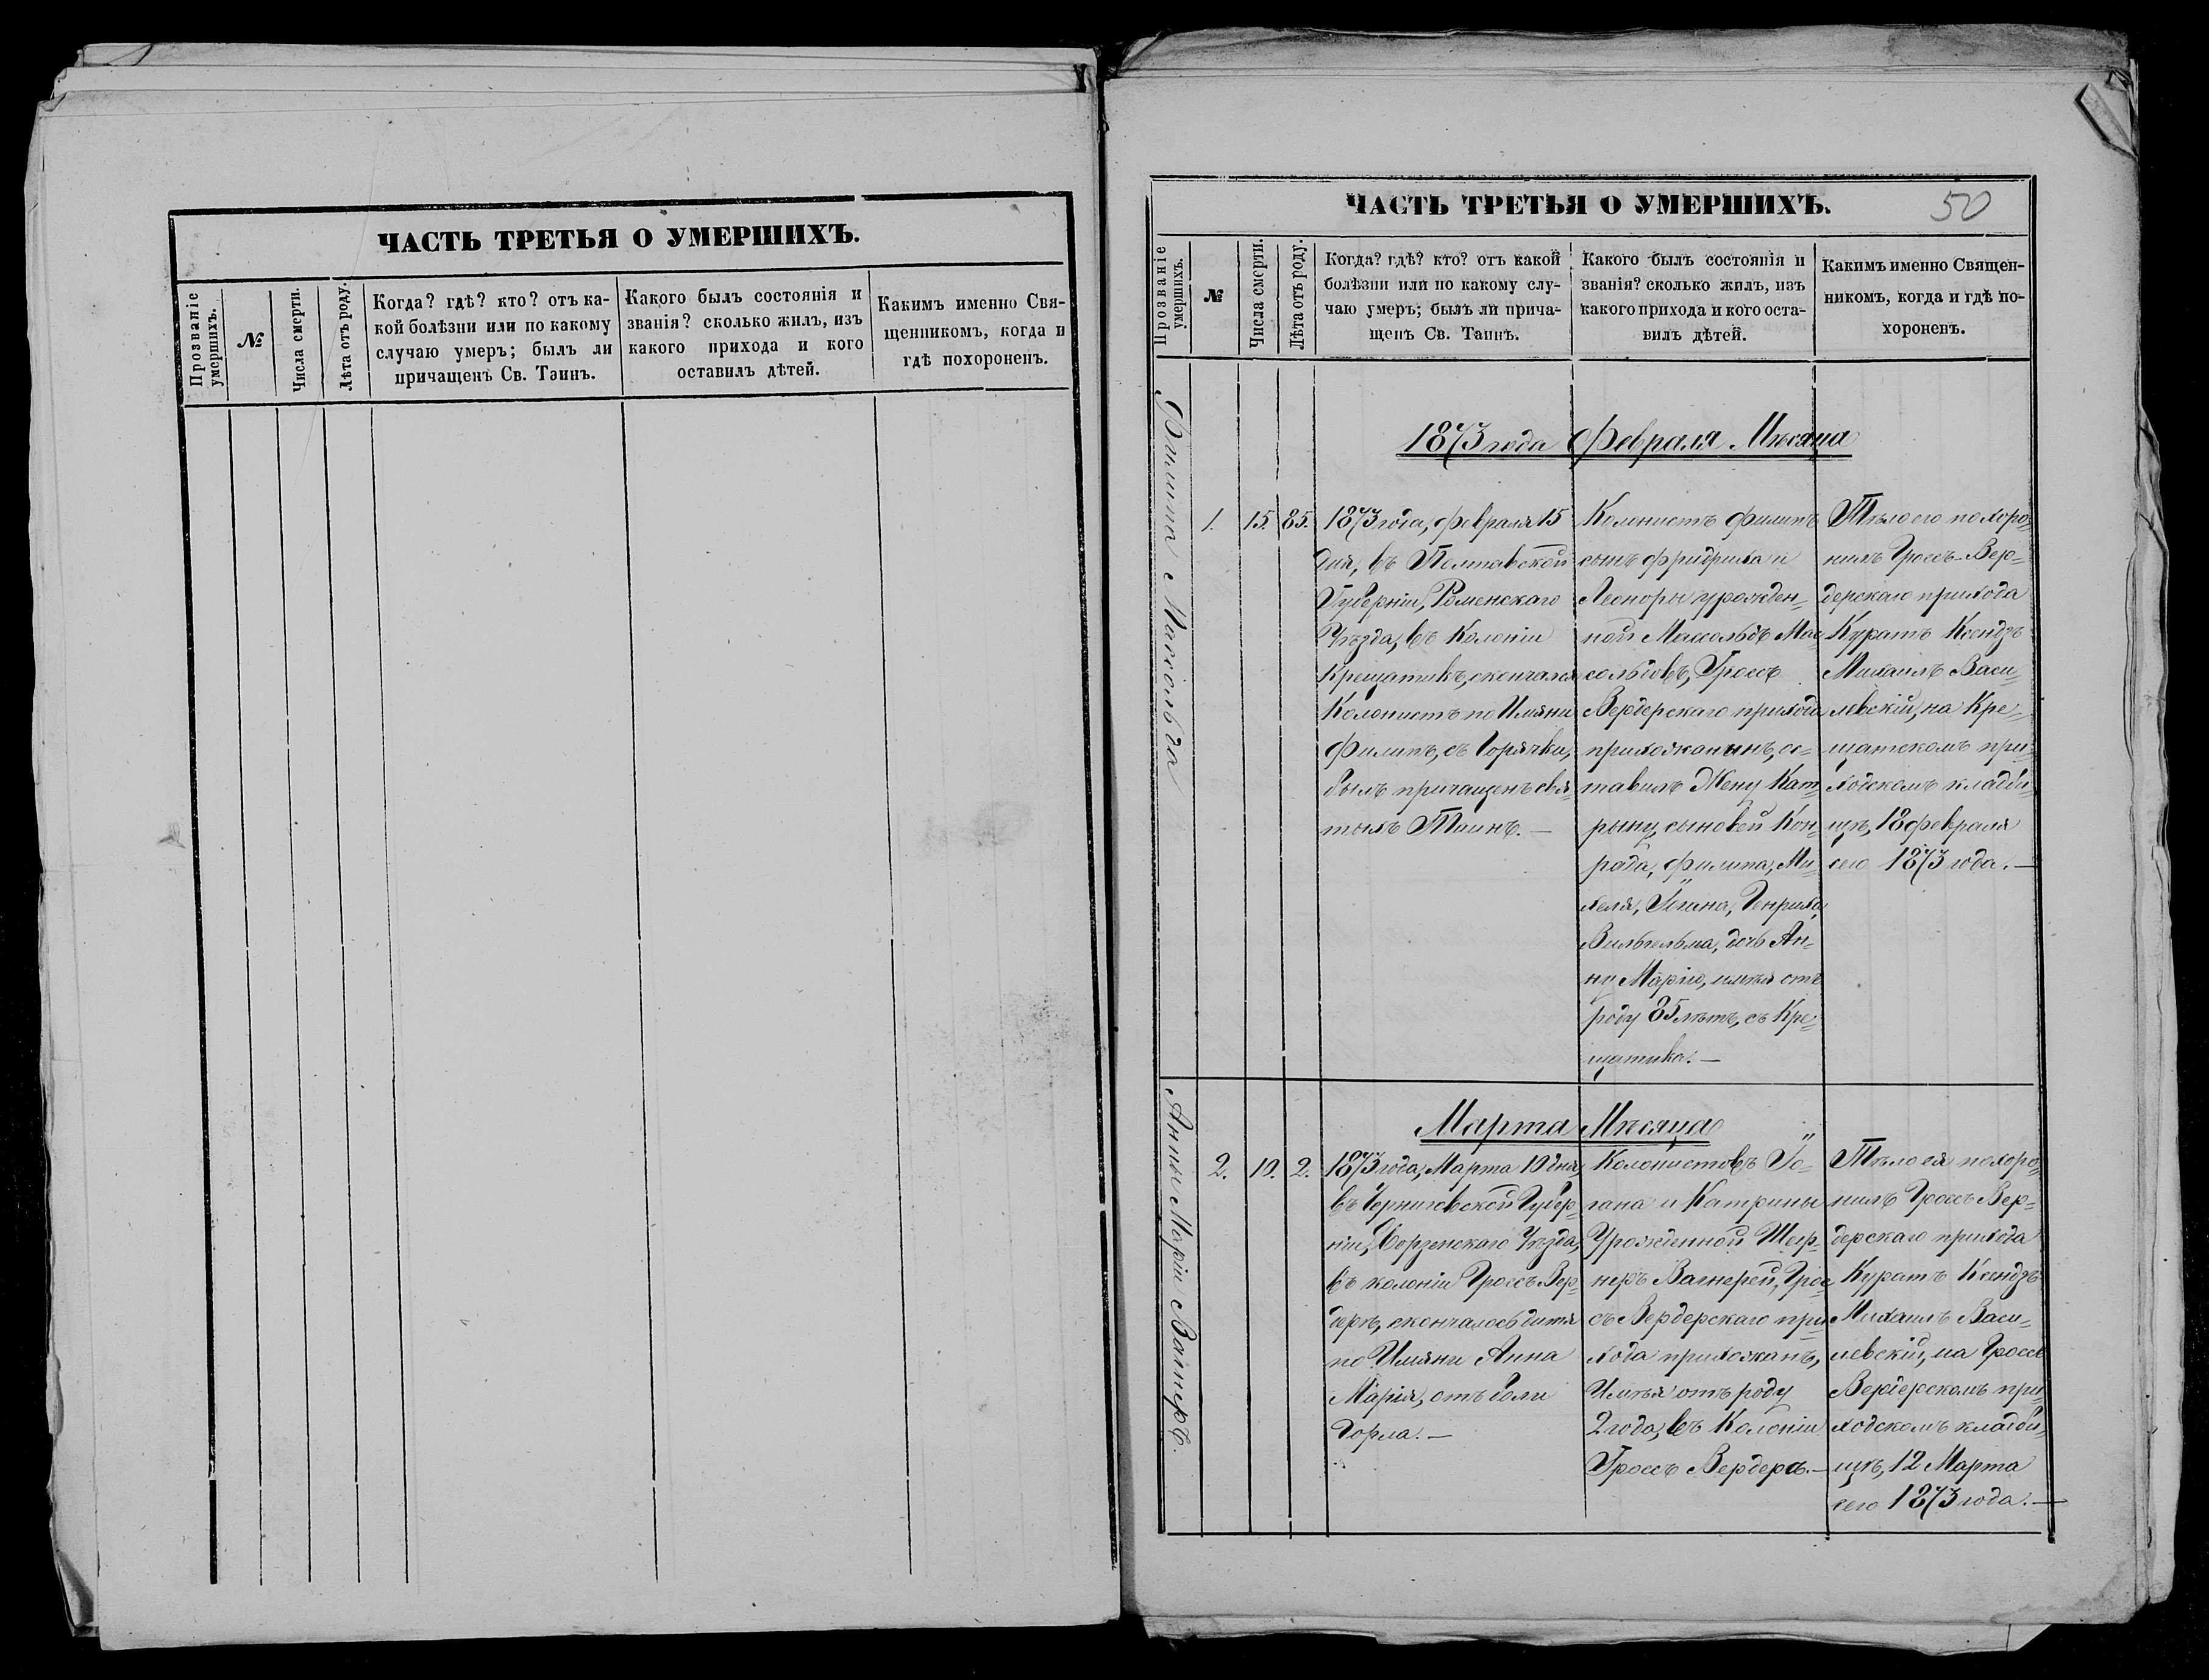 ЧАСТЬ ТРЕТЬЯ О УМЕРШИХЪ.
Прозваніе умершихъ.
№
Числа смерти.
Лѣта отъ роду.
Когда? гдѣ? кто? отъ ка-
кой болѣзни или по какому
случаю умеръ; былъ ли
причащенъ Св. Таинъ.
Какого былъ состоянія и
званія? сколько жилъ, изъ
какого прихода и кого
оставилъ дѣтей.
Какимъ именно Свя-
щенникомъ, когда и
гдѣ похороненъ.
ЧАСТЬ ТРЕТЬЯ О УМЕРШИХЪ.
50
Прозваніе умершихъ.
№
Числа смерти.
Лѣта отъ роду.
Когда? гдѣ? кто? отъ какой
болѣзни или по какому слу-
чаю умеръ; былъ ли прича-
щенъ Св. Таинъ.
Какого былъ состоянія и
званія? сколько жилъ, изъ
какого прихода и кого оста-
вилъ дѣтей.
Какимъ именно Священ-
никомъ, когда и гдѣ по-
хороненъ.
1873 года Февраля Мѣсяца
Филипа Масольда
1.
15.
85.
1873 года, февраля 15
дня, въ Полтавской
Губерніи, Роменскаго
Уѣзда, въ Колоніи
Крещатикъ, скончался
Колонистъ по Имяни
Филипъ, съ Горячки,
былъ причащенъ свя-
тыхъ Таинъ. —
Колонистъ Филипъ
сынъ Фридриха и
Леоноры урожден-
ной Масольдъ Мас
сольдовъ, Гроссъ
Вердерскаго прихода
прихожанинъ, ос-
тавилъ Жену Кат-
рыну, сыновей Кон-
рада, Филипа, Ми-
хеля, Іогана, Генриха,
Вильгельма, дочь Ан-
ну Марію, имѣя отъ
роду 85 лѣтъ, съ Кре-
щатика. —
Тѣло его похоро-
нилъ Гроссъ-Вер-
дерскаго прихода
Куратъ Ксендзъ
Михаилъ Васи-
левскій, на Кре-
щатскомъ при-
ходскомъ кладби-
щѣ, 18 февраля
сего 1873 года. —
Марта Мѣсяца
Анны Маріи Вагнеръ.
2.
10.
2.
1873 года, Марта 10 дня,
въ Черниговской Губер-
ніи, Борзенскаго Уѣзда,
въ колоніи Гроссъ Вер-
деръ, скончалось дитя
по Имяни Анна
Марія, отъ боли
Горла. —
Колонистовъ Іо-
гана и Катрины
Урожденной
Вагнерей, Грос
съ Вердерскаго при-
хода прихожанъ,
Имѣя отъ роду
2 года, въ Колоніи
Гроссъ Вердеръ. —
Тѣло ея похоро-
нилъ Гроссъ Вер-
дерскаго прихода
Куратъ Ксендзъ
Михаилъ Васи-
левскій, на Гроссъ
Вердерскомъ при-
ходскомъ кладби-
щѣ, 12 Марта
сего 1873 года. —